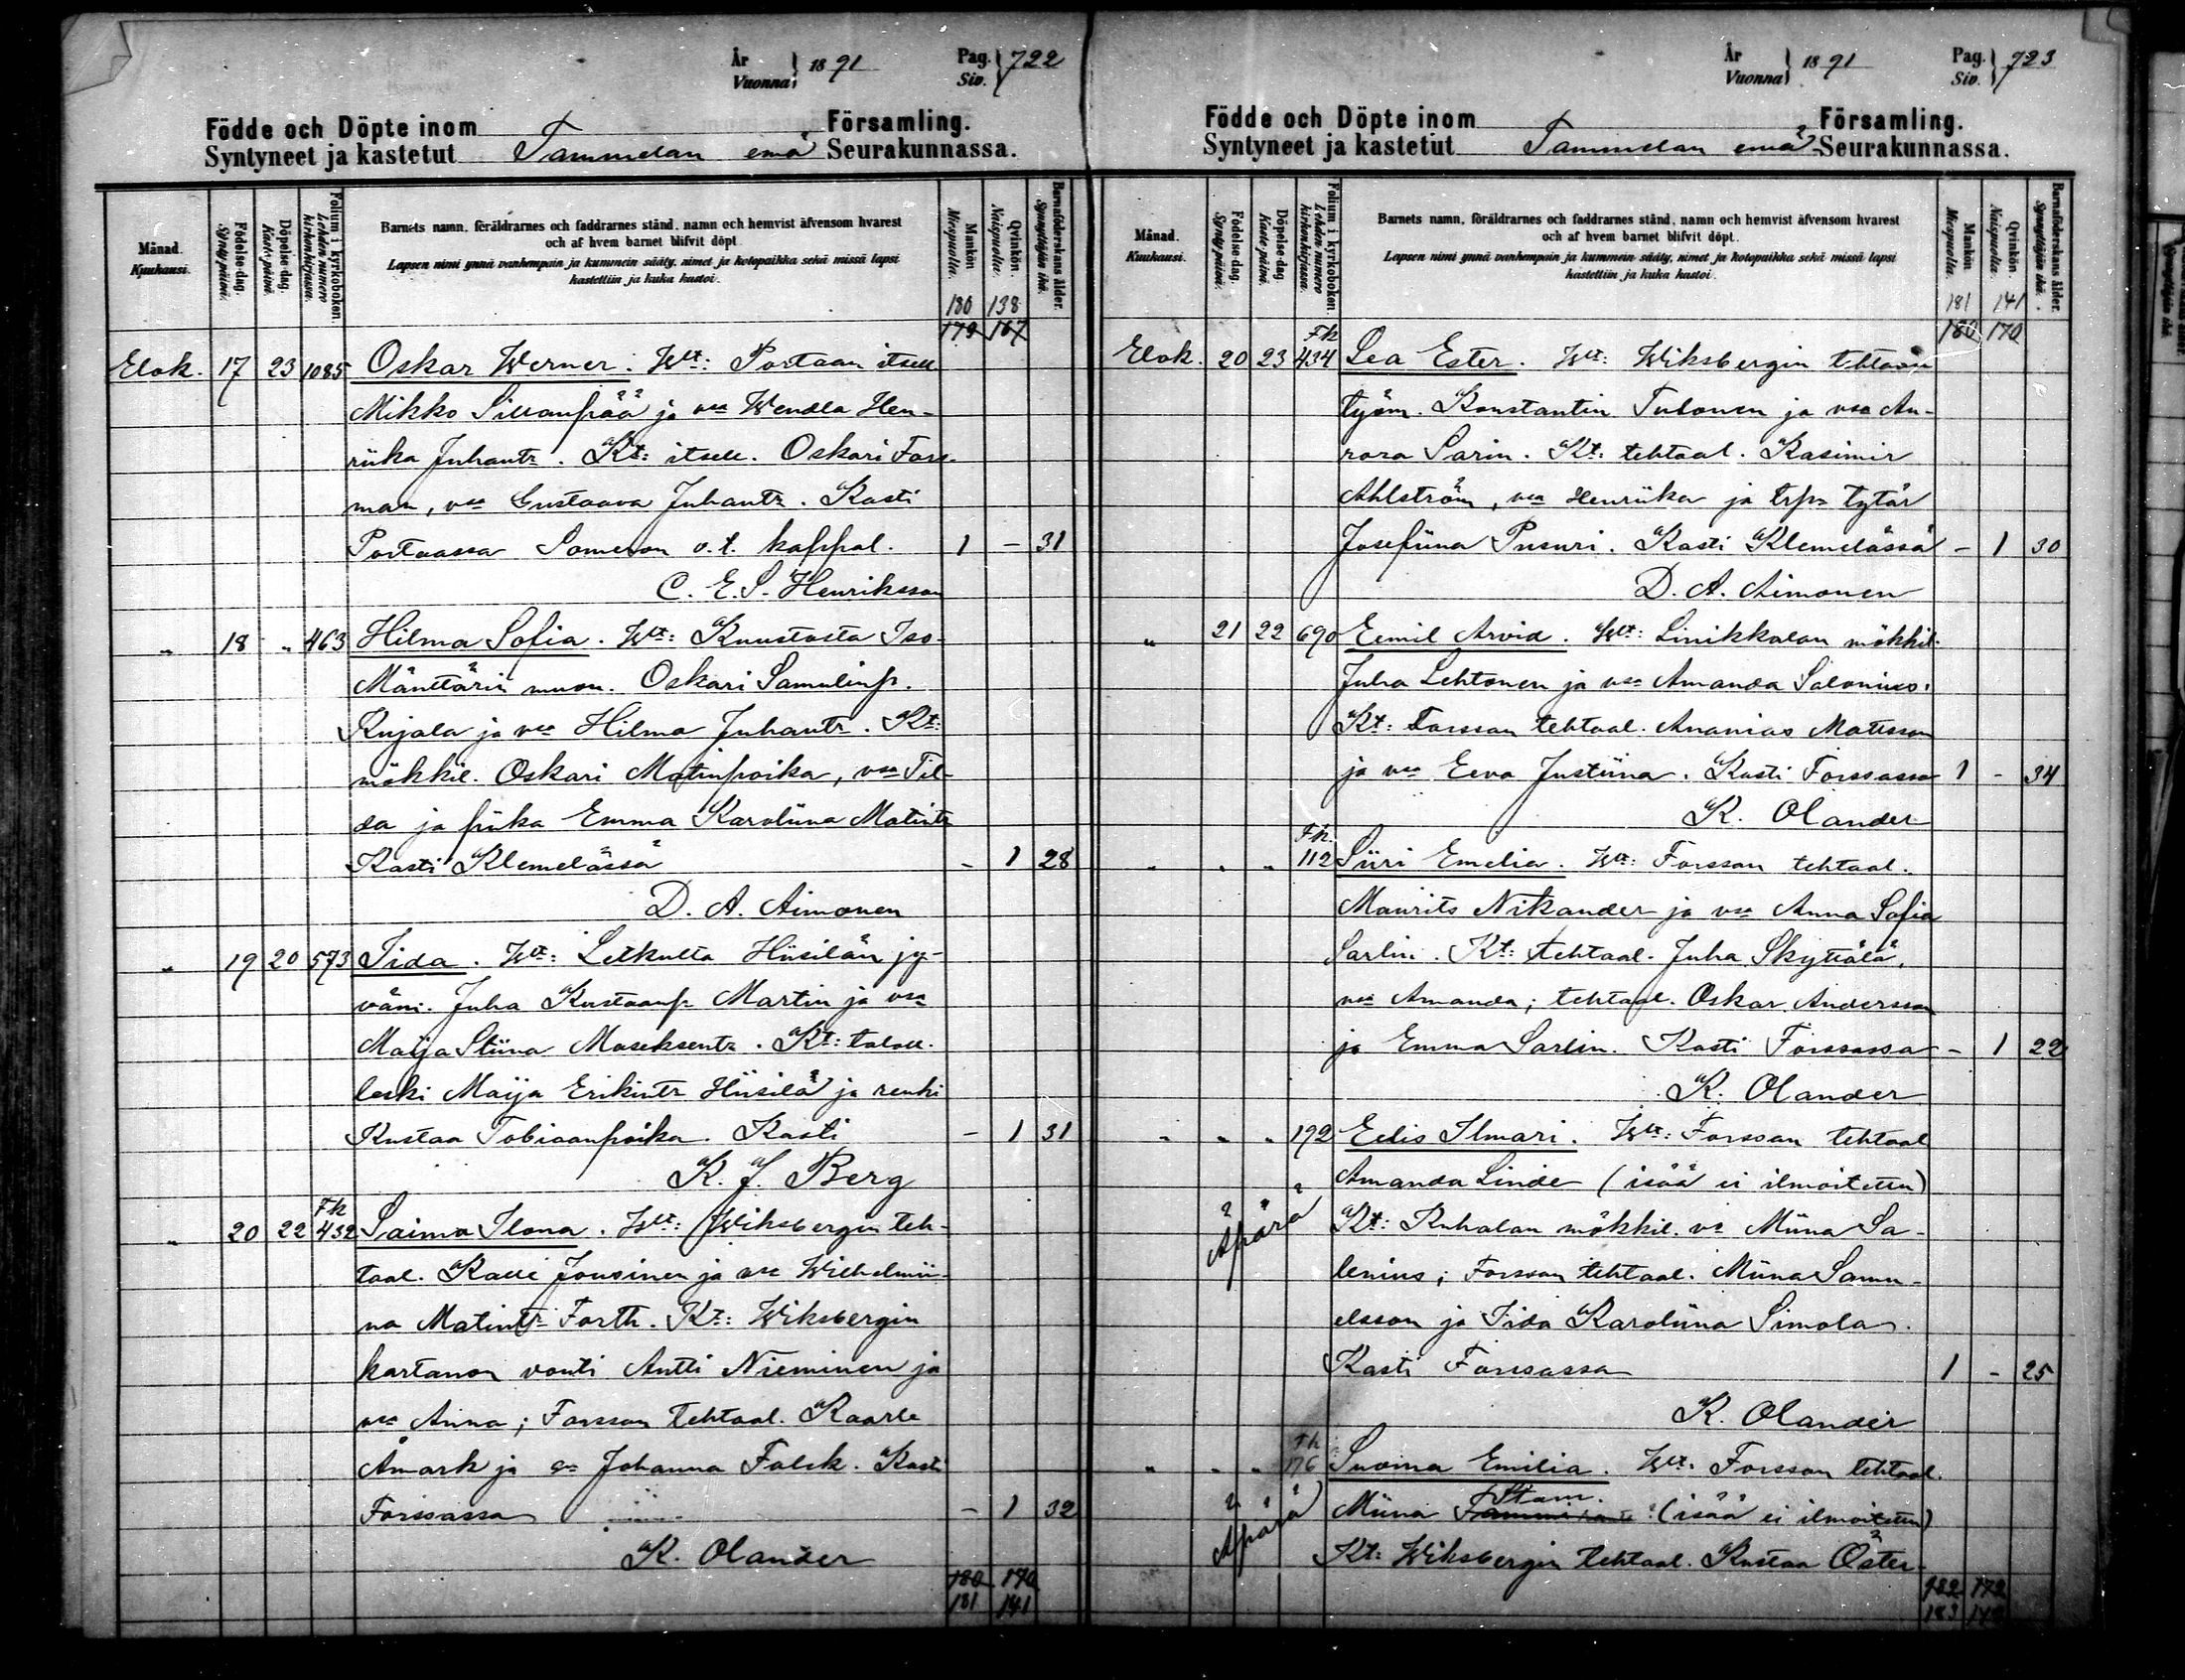 År
Vuonna 1891
Pag.
Siv. 722
Födde och Döpte inom Församling.
Syntyneet ja kastetut Tammelan emä Seurakunnassa.
Månad.
Kuukausi.
Födelse-dag.
Synty-päivä.
Döpelse-dag.
Kaste-päivä.
Folium i kyrkoboken.
Lehden numero kirkonkirjassa.
Barnets namn, föräldrarnes och faddrarnes stånd, namn och hemvist äfvensom hvarest
och af hvem barnet blifvit döpt.
Lapsen nimi ynnä vanhempain ja kummein sääty, nimet ja kotopaikka sekä missä lapsi
kastettiin ja kuka kastoi.
Mankön.
Miespuolia.
Qvinkön.
Naispuolia.
Barnaföderskans ålder.
Synnyttäjän ikä.
180 138
179 167
Elok. 17 23 1085 Oskar Werner. Wt: Portaan itsell.
Mikko Sillanpää ja vaa Wendla Hen-
riika Juhantr. Kt: itsell. Oskari Fors-
man, vaa Gustaava Juhantr. Kasti
Portaassa Someron v.t. kappal. 1 - 31
C. E. S. Henriksson
" 18 " 463 Hilma Sofia. Wt: Kuustosta Iso-
Mänttärin muon. Oskari Samulinp.
Kujala ja vaa Hilma Juhantr. Kt:
mökkil. Oskari Matinpoika, vaa Til-
da ja piika Emma Karoliina Matintr
Kasti Klemelässä - 1 28
D. A. Aimonen
" 19 20 573 Iida. Wt: Letkulta Hiisilän jy-
väm. Juha Kustaanp. Martin ja vaa
Maija Stiina Moseksentr. Kt: talol.
leski Maija Erikintr Hiisilä ja renki
Kustaa Tobiaanpoika. Kasti - 1 31
K. J. Berg
" 20 22 Fk 432 Saima Ilona. Wt: Wiksbergin teh-
taal. Kalle Jousinen ja vaa Wilhelmii-
na Matintr Forth. Kt: Wiksbergin
kartanon vouti Antti Nieminen ja
vaa Anna; Forssan tehtaal. Kaarle
Åmark ja Johanna Falck. Kasti
Forssassa - 1 32
K. Olander
180 170
181 141
År
Vuonna 1891
Pag.
Siv. 723
Födde och Döpte inom Församling.
Syntyneet ja kastetut Tammelan emä Seurakunnassa.
Månad.
Kuukausi.
Födelse-dag.
Synty-päivä.
Döpelse-dag.
Kaste-päivä.
Folium i kyrkoboken.
Lehden numero kirkonkirjassa.
Barnets namn, föräldrarnes och faddrarnes stånd, namn och hemvist äfvensom hvarest
och af hvem barnet blifvit döpt.
Lapsen nimi ynnä vanhempain ja kummein sääty, nimet ja kotopaikka sekä missä lapsi
kastettiin ja kuka kastoi.
Mankön.
Miespuolia.
Qvinkön.
Naispuolia.
Barnaföderskans ålder.
Synnyttäjän ikä.
181 141
180 170
Elok. 20 23 Fk 434 Lea Ester. Wt: Wiksbergin tehtaan
työm. Konstantin Tuhonen ja vaa Au-
rora Sarin. Kt: tehtaal. Kasimir
Ahlström, vaa Henriika ja trp. tytär
Josefiina Pusuri. Kasti Klemelässä - 1 30
D. A. Aimonen
" 21 22 690 Eemil Arvid. Wt: Linikkalan mökkil.
Juha Lehtonen ja vaa Amanda Salonius.
Kt: Forssan tehtaal. Ananias Matsson
ja vaa Eeva Justiina. Kasti Forssassa 1 - 34
K. Olander
" " " Fk. 112 Siiri Emelia. Wt: Forssan tehtaal.
Maurits Nikander ja vaa Anna Sofia
Sarlin. Kt: tehtaal. Juha Skyttälä,
vaa Amanda; tehtaal. Oskar Andersson
ja Emma Sarlin. Kasti Forssassa - 1 22
K. Olander
" " " 192 Eelis Ilmari. Wt: Forssan tehtaal
Amanda Linde (isää ei ilmoitettu)
Äpärä Kt: Kuhalan mökkil. va Miina Sa-
lenius; Forssan tehtaal. Miina Samu-
elsson ja Iida Karoliina Simola.
Kasti Forssassa 1 - 25
K. Olander
" " " Fk 176 Suoma Emilia. Wt: Forssan tehtaal.
Stam.
Äpärä Miina (isää ei ilmoitettu)
Kt: Wiksbergin tehtaal. Kustaa Öster-
182 172
183 142